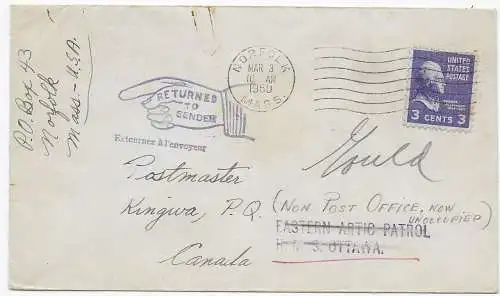 P.O. Box 43
Norfolk
Mass - U.S.A.
NORFOLK
MAR 3
AM
1950
MASS.
UNITED
STATES
POSTAGE
3 CENTS 3
RETURNED
TO
SENDER
Retournez à l'envoyeur
Gould
Postmaster
Kingwa, P.Q. (NON POST OFFICE, NOW
UNOCCUPIED)
EASTERN ARTIC PATROL
OTTAWA.
Canada